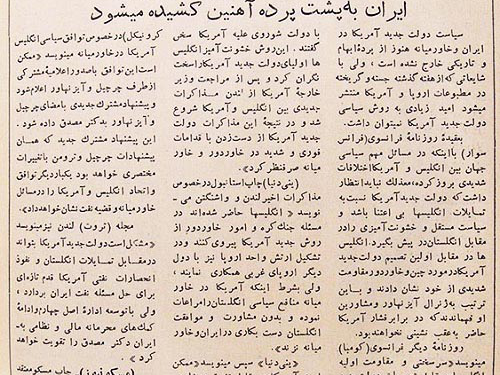 ایران به‌پشت پرده آهنین کشیده میشود
سیاست دولت جدید آمریکا در
ایران وخاورمیانه هنوز از پردهٔ ابهام
و تاریکی خارج نشده است ، ولی با
شایعاتی که از هفته گذشته جسته و گریخته
در مطبوعات اروپا و آمریکا منتشر
میشود امید زیادی به روش سیاسی
دولت جدید آمریکا نمیتوان داشت .
بعقیدهٔ روزنامهٔ فرانسوی (فرانس
سوار) با اینکه در مسائل مهم سیاسی
جهان بین انگلیس و آمریکا اختلافات
شدیدی بروز کرده، معذلك نباید انتظار
داشت که دولت جدید آمریکا نسبت به
تمایلات انگلیسها بی اعتنا باشد و
سیاست مستقل و خشونت آمیزی را در
مقابل انگلستان در پیش بگیرد. انگلیس
ها در مقابل اولین تصمیم دولت جدید
آمریکا در مورد چین و خاوردور مقاومت
شدیدی از خود نشان دادند و باین
ترتیب به ژنرال آیزنهاور و مشاورین
او فهماندند که در برابر فشار آمریکا
حاضر به عقب نشینی نخواهند بود.
روزنامهٔ دیگر فرانسوی (کومبا)
مینویسد «سرسختی و مقاومت اولیه
با دولت شوروی علیه آمریکا سخن
گفتند . این روش خشونت آمیز انگلیس
ها اولیای دولت جدید آمریکا را سخت
نگران کرد و پس از مراجعت وزیر
خارجهٔ آمریکا از لندن مذاکرات
جدیدی بین انگلیس و آمریکا شروع
شد و در نتیجهٔ این مذاکرات دولت
جدید آمریکا از دست زدن با قدامات
فوری و شدید در خاوردور و خاور
میانه صرفنظر کرد».
(ینی دنیا) چاپ استانبول در خصوص
مذاکرات اخیر لندن و واشنگتن می
نویسد « انگلیسها حاضر شده اند در
مسئله جنك کره و امور خاوردور از
روش جدید آمریکا پیروی کنند و در
تشکیل ارتش واحد اروپا نیز با دول
دیگر اروپای غربی همکاری نمایند ،
ولی بشرط اینکه آمریکا در خاور
میانه منافع سیاسی انگلستان را مراعات
نموده و بدون مشاورت و موافقت
انگلستان دست بکاری در ایران و خاور
میانه نزند».
(ینی دنیا» سپس مینویسد «ممکن
کرونیکل) در خصوص توافق سیاسی انگلیس
آمریکا در خاورمیانه مینویسد «ممکن
است این توافق با صدور اعلامیهٔ مشترکی
از طرف چرچیل و آیزنهاور اعلام شود
و پیشنهاد مشترك جدیدی بامضای چرچیل
و آیزنهاور بدکتر مصدق داده شود .
این پیشنهاد مشترك جدید که همان
پیشنهادات چرچیل و ترومن با تغییرات
مختصری خواهد بود یکبار دیگر توافق
و اتحاد انگلیس و آمریکا را در مسائل
خاورمیانه و قضیه نفت نشان خواهد داد».
مجله (تروت) لندن نیز مینویسد
«مشکل است دولت جدید آمریکا بتواند
در مقابل تمایلات انگلستان و نفوذ
انحصارات نفتی آمریکا قدم تازه‌ای
برای حل مسئله نفت ایران بردارد ،
ولی با توسعه ادارهٔ اصل چهارم و ادامهٔ
کمك‌های محرمانه مالی و نظامی به
ایران دکتر مصدق را تقویت خواهد
کرد ».
چاپ مسکو معتقد